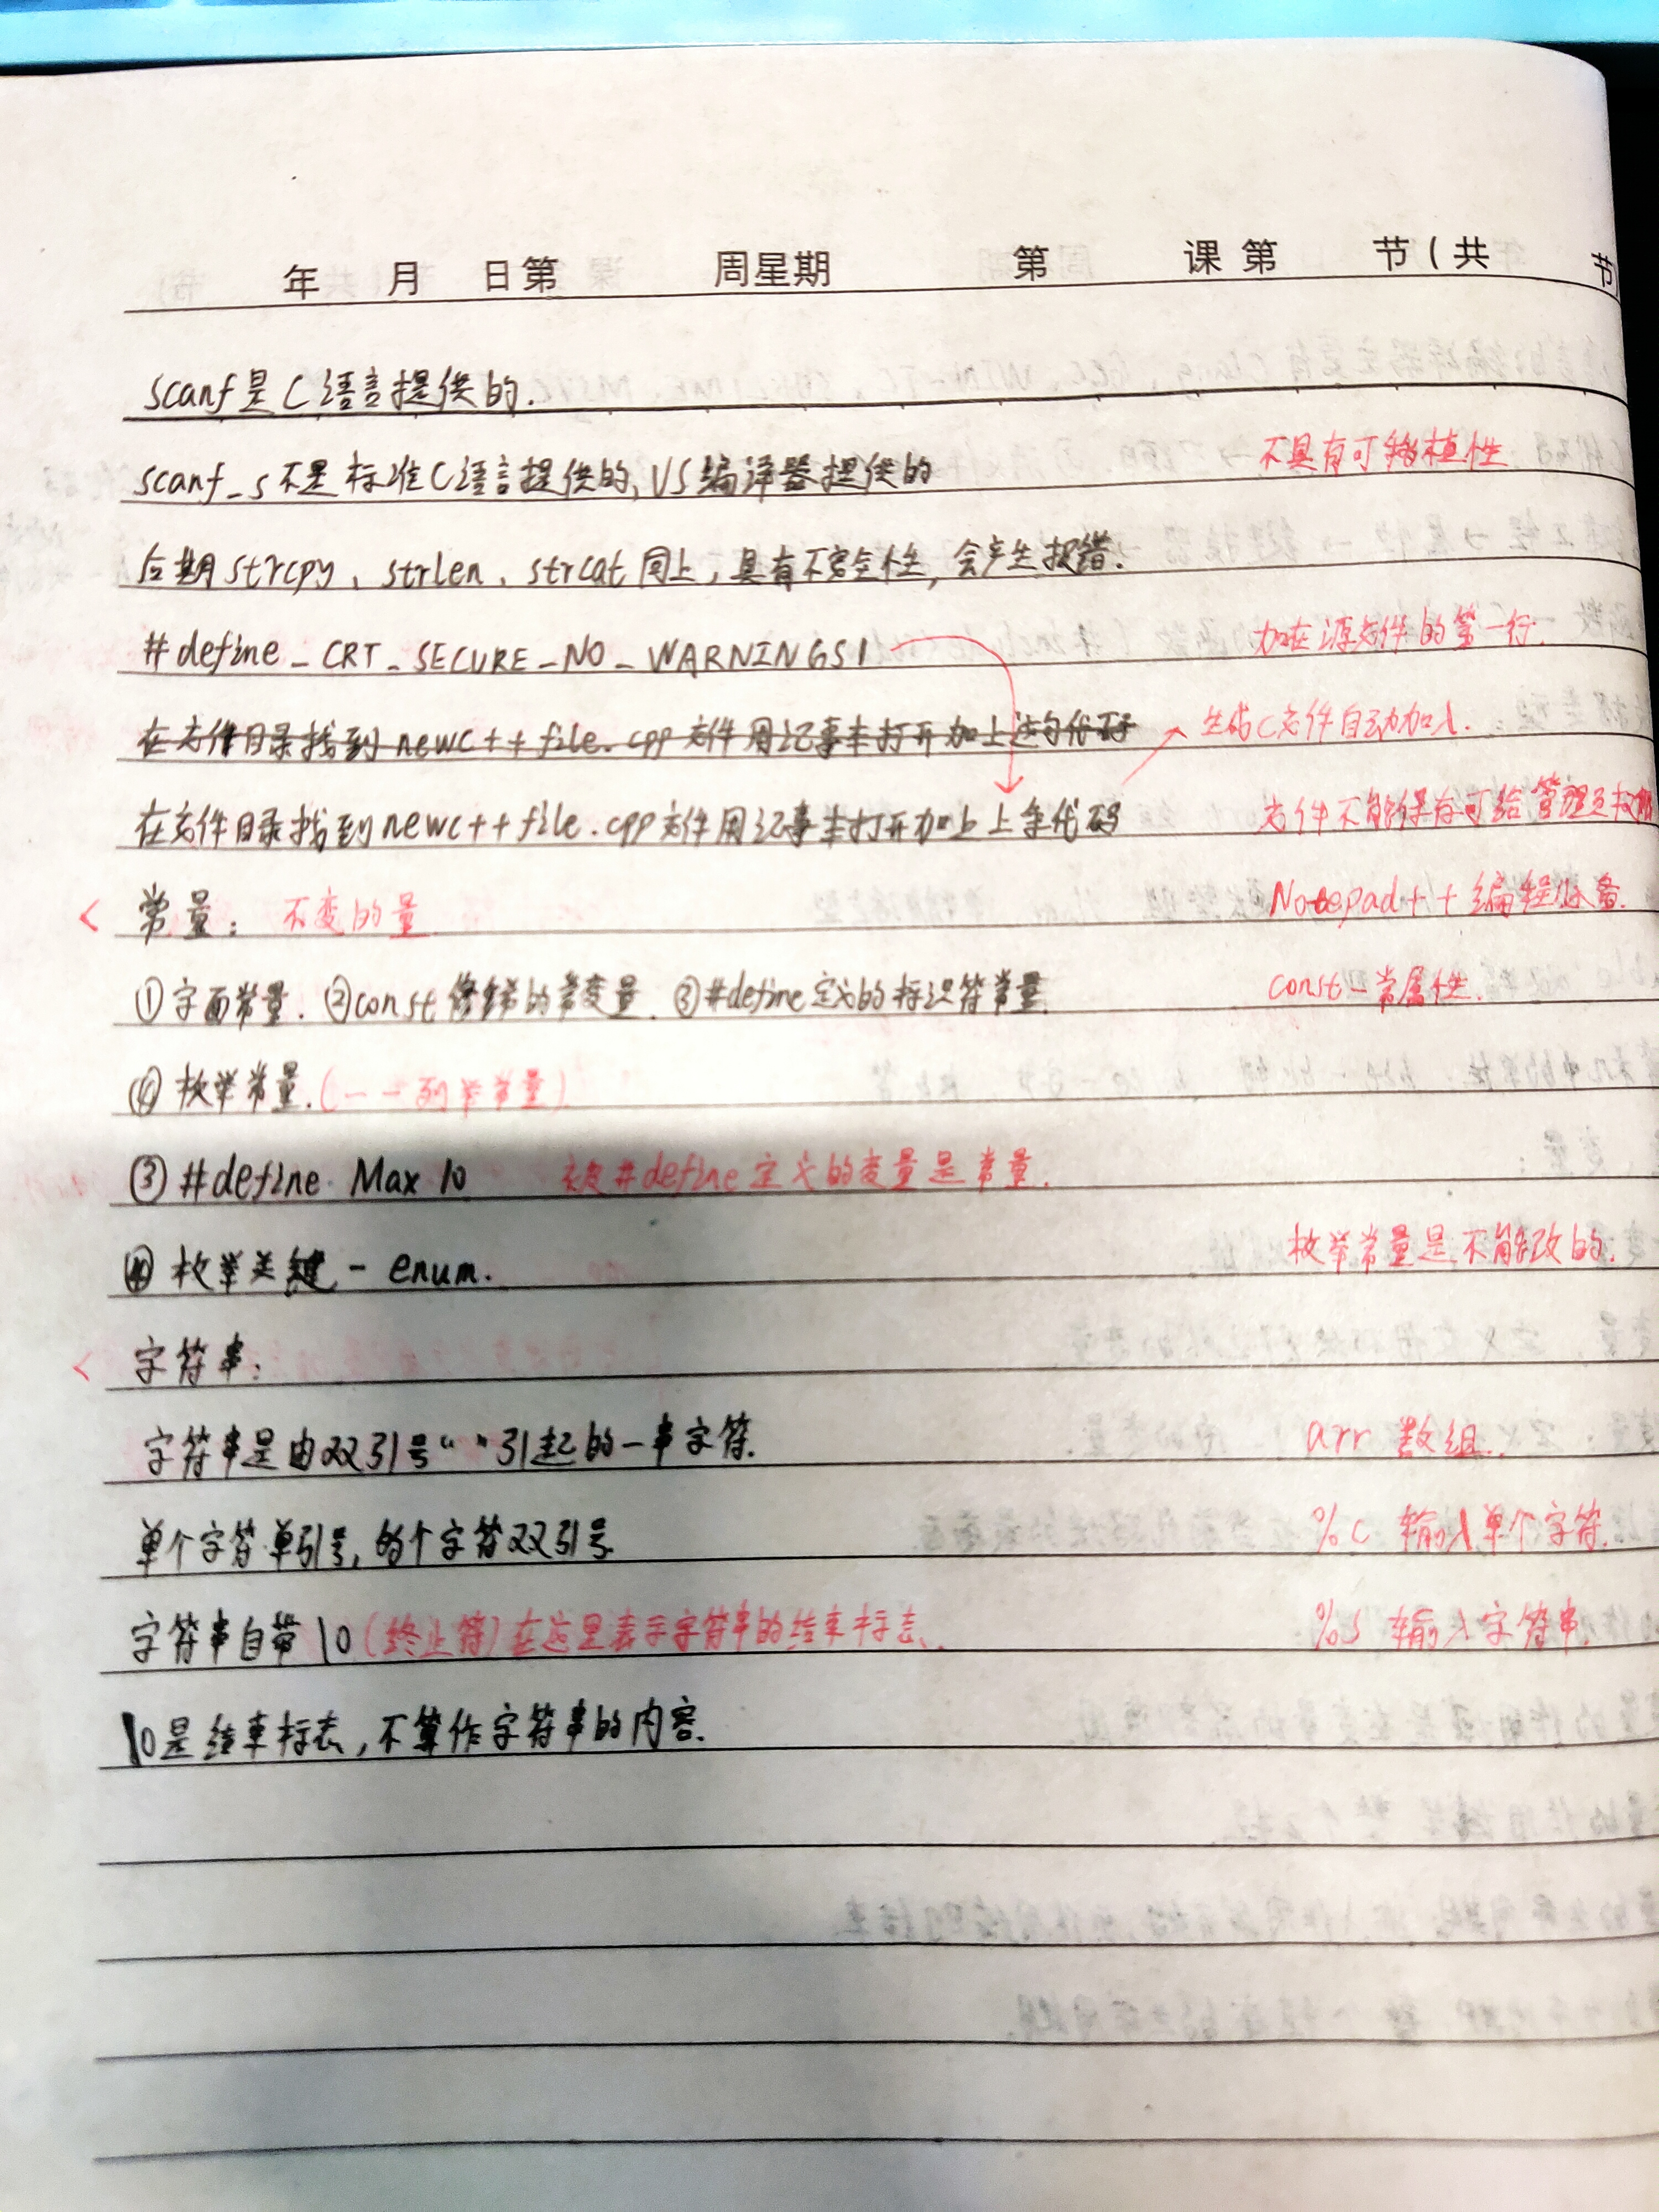 年 月 日第 周星期 第 课 第 节(共 节)
scanf是C语言提供的.
scanf_s不是标准C语言提供的,VS编译器提供的 不具有可移植性
后期strcpy、strlen、strcat同上,具有不安全性,会产生报错.
#define_CRT_SECURE_NO_WARNINGS1 加在源文件的第一行.
在文件目录找到newc++file.cpp文件用记事本打开加上这句代码 生成C文件自动加入.
在文件目录找到newc++file.cpp文件用记事本打开加上上条代码 文件不能保存可给管理员权限
常量: 不变的量 Notepad++编程必备.
①字面常量. ②const修饰的常变量. ③#define定义的标识符常量. const-常属性.
④枚举常量.(一一列举常量)
③#define Max 10 被#define定义的变量是常量.
④枚举关键-enum. 枚举常量是不能改的.
字符串:
字符串是由双引号“ ”引起的一串字符. arr 数组.
单个字符单引号,多个字符双引号. %c 输入单个字符.
字符串自带\0(终止符)在这里表示字符串的结束标志. %s 输入字符串.
\0是结束标志,不算作字符串的内容.